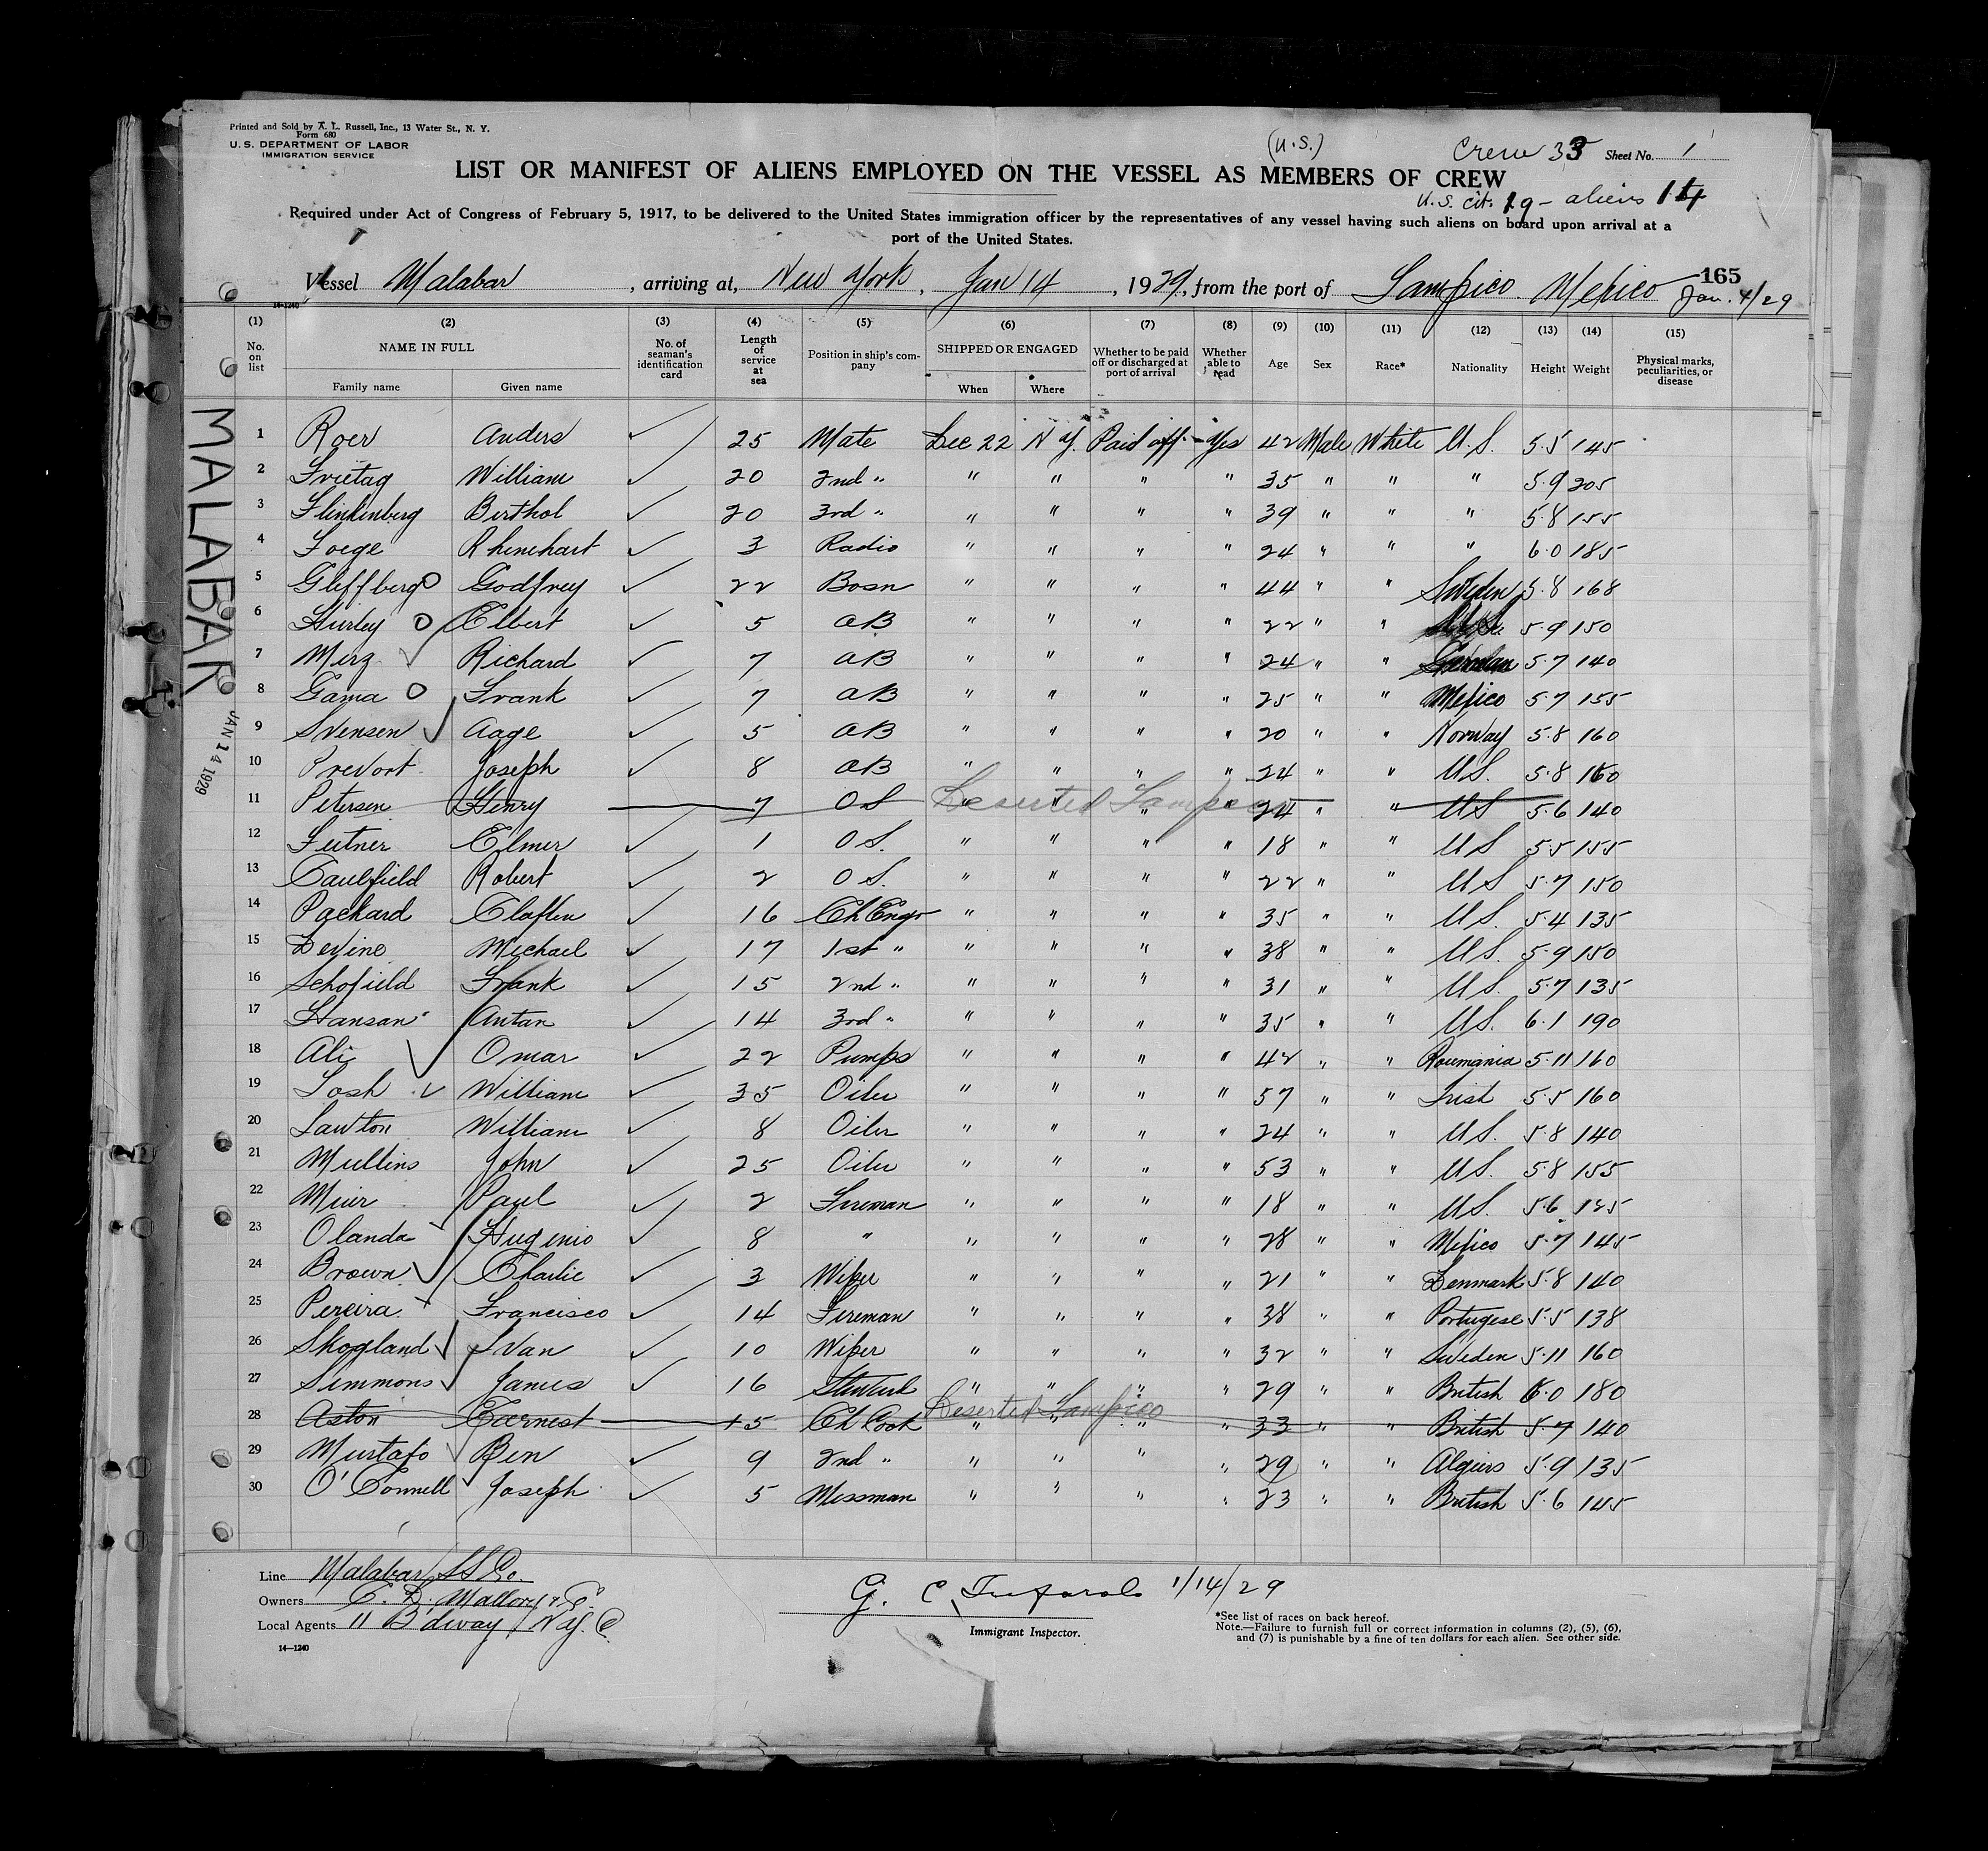 Printed and Sold by A. L. Russell, Inc., 13 Water St., N. Y.
Form 680
U. S. DEPARTMENT OF LABOR
IMMIGRATION SERVICE
(U.S.)
Crew 33 Sheet No. 1
LIST OR MANIFEST OF ALIENS EMPLOYED ON THE VESSEL AS MEMBERS OF CREW
U.S. cit. 19 - aliens 14
Required under Act of Congress of February 5, 1917, to be delivered to the United States immigration officer by the representatives of any vessel having such aliens on board upon arrival at a
port of the United States.
165
Vessel Malabar, arriving at, New York, Jan 14, 1929, from the port of Tampico. Mexico Jan. 4/29
14-1240
(1) (2) (3) (4) (5) (6) (7) (8) (9) (10) (11) (12) (13) (14) (15)
No. on list NAME IN FULL Family name Given name No. of seaman's identification card Length of service at sea Position in ship's company SHIPPED OR ENGAGED When Where Whether to be paid off or discharged at port of arrival Whether able to read Age Sex Race* Nationality Height Weight Physical marks, peculiarities, or disease
MALABAR
JAN 14 1929
1 Roer Anders ✓ 25 Mate Dec 22 N Y. Paid off - Yes 42 Male White U.S. 5.5 145
2 Frietag William ✓ 20 2nd " " " " " 35 " " " 5.9 205
3 Flinkenberg Berthol ✓ 20 3rd " " " " " 39 " " " 5.8 155
4 Foege Rhinehart ✓ 3 Radio " " " " 24 " " " 6.0 185
5 Gleffberg Godfrey ✓ 22 Bosn " " " " 44 " " Sweden 5.8 168
6 Hurley Elbert ✓ 5 AB " " " " 22 " " 5.9 150
7 Merz Richard ✓ 7 AB " " " " 24 " " German 5.7 140
8 Gama Frank ✓ 7 AB " " " " 25 " " Mexico 5.7 155
9 Svensen Aage ✓ 5 AB " " " " 20 " " Norway 5.8 160
10 Prevort Joseph ✓ 8 AB " " " " 24 " " U.S. 5.8 160
11 Petersen Henry 7 OS Deserted Tampico " " " " 24 " " US 5.6 140
12 Feitner Elmer ✓ 1 O S. " " " " 18 " " U S 5.5 155
13 Caulfield Robert ✓ 2 O S. " " " " 22 " " U S 5.7 150
14 Packard Claflin ✓ 16 Ch Engr " " " " 35 " " U S. 5.4 135
15 Devine Michael ✓ 17 1st " " " " " 38 " " U S. 5.9 150
16 Schofield Frank ✓ 15 2nd " " " " " 31 " " U S. 5.7 135
17 Hansan Antan ✓ 14 3rd " " " " " 35 " " U S. 6.1 190
18 Ali Omar ✓ 22 Pumps " " " " 42 " " Roumania 5.11 160
19 Tosh William ✓ 35 Oiler " " " " 57 " " Irish 5.5 160
20 Lawton William ✓ 8 Oiler " " " " 24 " " U S. 5.8 140
21 Mullins John ✓ 25 Oiler " " " " 53 " " U S. 5.8 155
22 Muir Paul ✓ 2 Fireman " " " " 18 " " U S. 5.6 125
23 Olanda Hugenio ✓ 8 " " " " " 28 " " Mexico 5.7 145
24 Brown Charlie ✓ 3 Wiper " " " " 21 " " Denmark 5.8 140
25 Pereira Francisco ✓ 14 Fireman " " " " 38 " " Portugese 5.5 138
26 Skogland Ivan ✓ 10 Wiper " " " " 32 " " Sweden 5.11 160
27 Simmons James ✓ 16 Steward " " " " 29 " " British 6.0 180
28 Aston Earnest 15 Ch Cook Deserted Tampico " " " " 33 " " British 5.7 140
29 Mustafo Ben ✓ 9 2nd " " " " " 29 " " Algiers 5.9 135
30 O'Connell Joseph ✓ 5 Messman " " " " 23 " " British 5.6 145
Line Malabar SS Co.
Owners C. D. Mallory & Co.
Local Agents 11 B'dway N.Y.C.
14-1240
G. C. 1/14/29
Immigrant Inspector.
*See list of races on back hereof.
Note.—Failure to furnish full or correct information in columns (2), (5), (6),
and (7) is punishable by a fine of ten dollars for each alien. See other side.